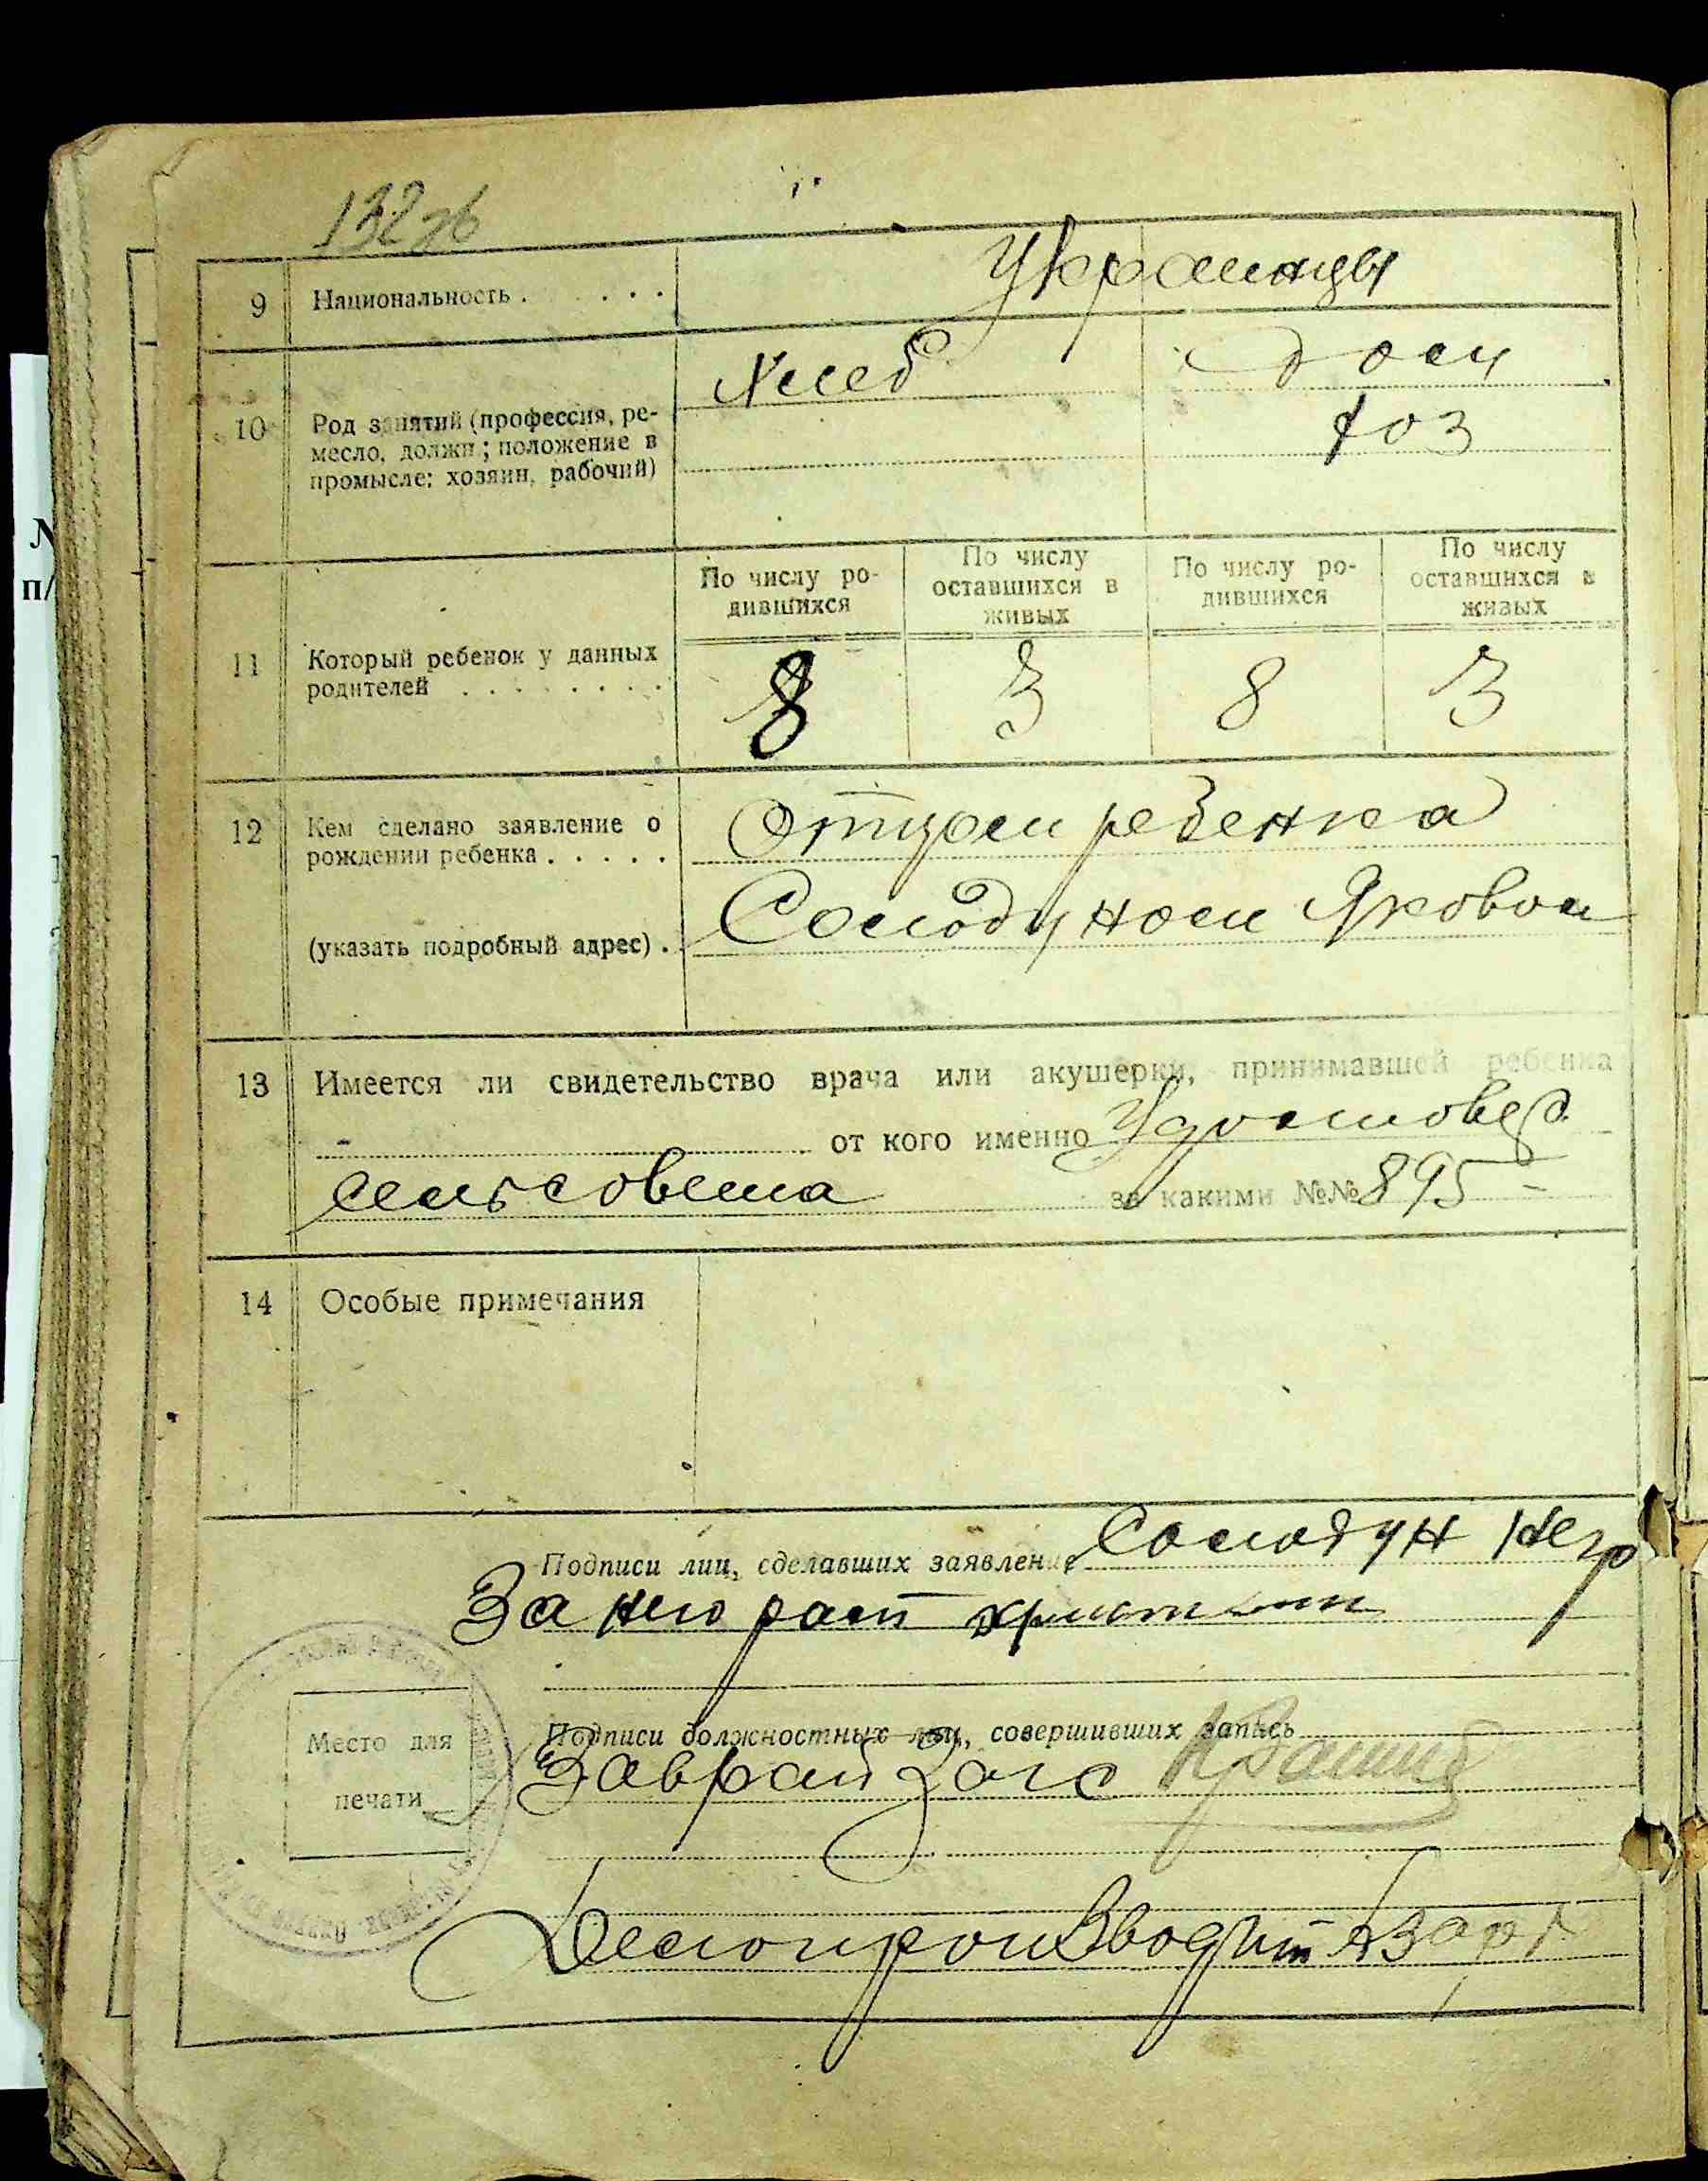 132 зв
9 Национальность . . . . . Украинцы
10 Род занятий (профессия, ре-
месло, должн.; положение в
промысле: хозяин, рабочий)
Хлеб дом
хоз
По числу ро-
дившихся
По числу
оставшихся в
живых
По числу ро-
дившихся
По числу
оставшихся в
живых
11 Который ребенок у данных
родителей . . . . . . . .
8 3 8 3
12 Кем сделано заявление о
рождении ребенка . . . . .
Отцом ребенка
(указать подробный адрес) .
Солодуном Яковом
13 Имеется ли свидетельство врача или акушерки, принимавшей ребенка
- от кого именно Удостовер
сельсовета за какими №№ 895 -
14 Особые примечания
Подписи лиц, сделавших заявление Солодун Негр
За него расп
Подписи должностных лиц, совершивших запись
Завраб Загс
Место для
печати
Делопроизводит